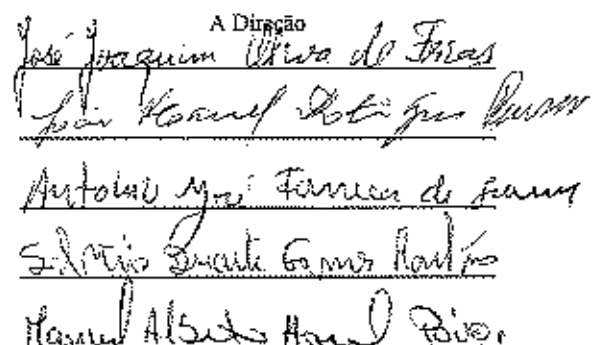 A Direção
José Joaquim Oliva de Frias
João Manuel Rodrigues
António José Ferreira de
Silvério Duarte Gomes Martins
Manuel Alberto